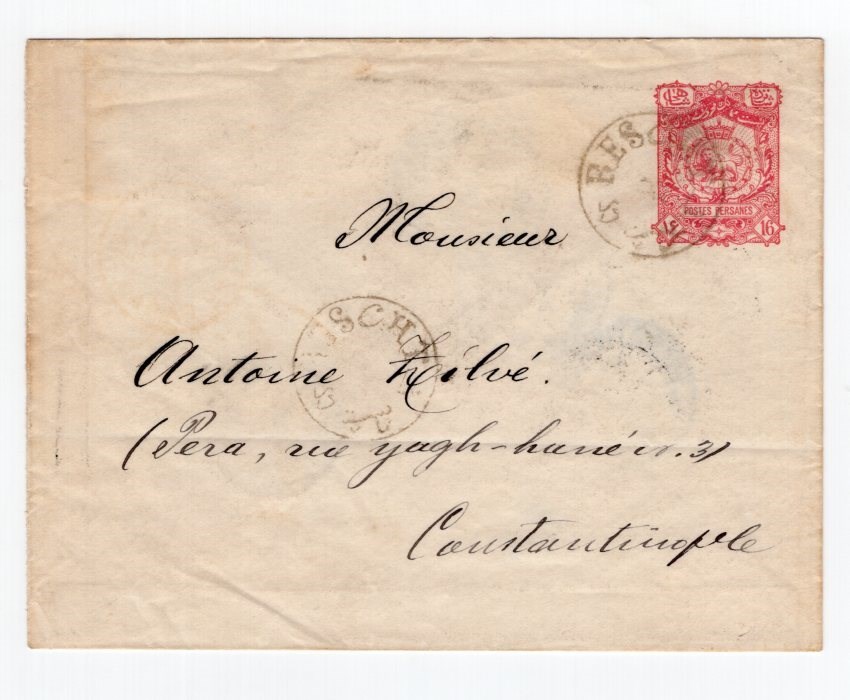 RESCHT
POSTES PERSANES
16
Monsieur
RESCHT
Antoine Zilvé.
(Pera, rue yagh-hané nr. 3)
Constantinople